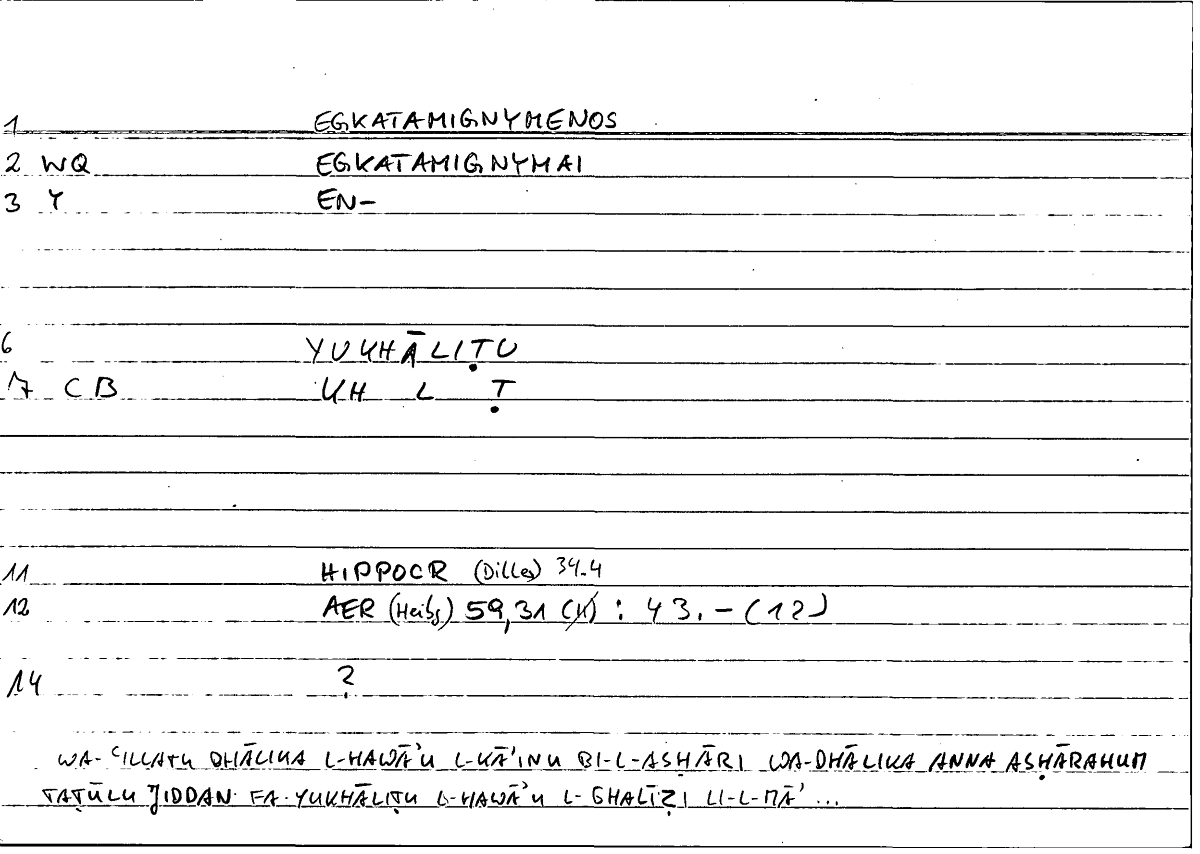 1 EGKATAMIGNYMENOS
2 WQ EGKATAMIGNYMAI
3 Y EN-
6 YUKHĀLIṬU
7 CB KH L Ṭ
11 HIPPOCR (Diller) 34.4
12 AER (Heibg) 59,31 : 43.-(12)
14 ?
WA-ʿILLATU DHĀLIKA L-HAWĀʾU L-KĀʾINU BI-L-ASḤĀRI WA-DHĀLIKA ANNA ASḤĀRAHUM
TAṬŪLU JIDDAN FA-YUKHĀLIṬU L-HAWĀʾU L-GHALĪẒI LI-L-MĀʾ...